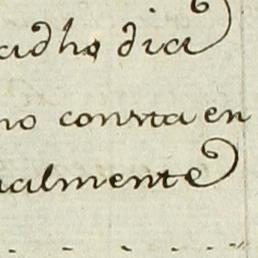 adho dia
no consta en
ualmente